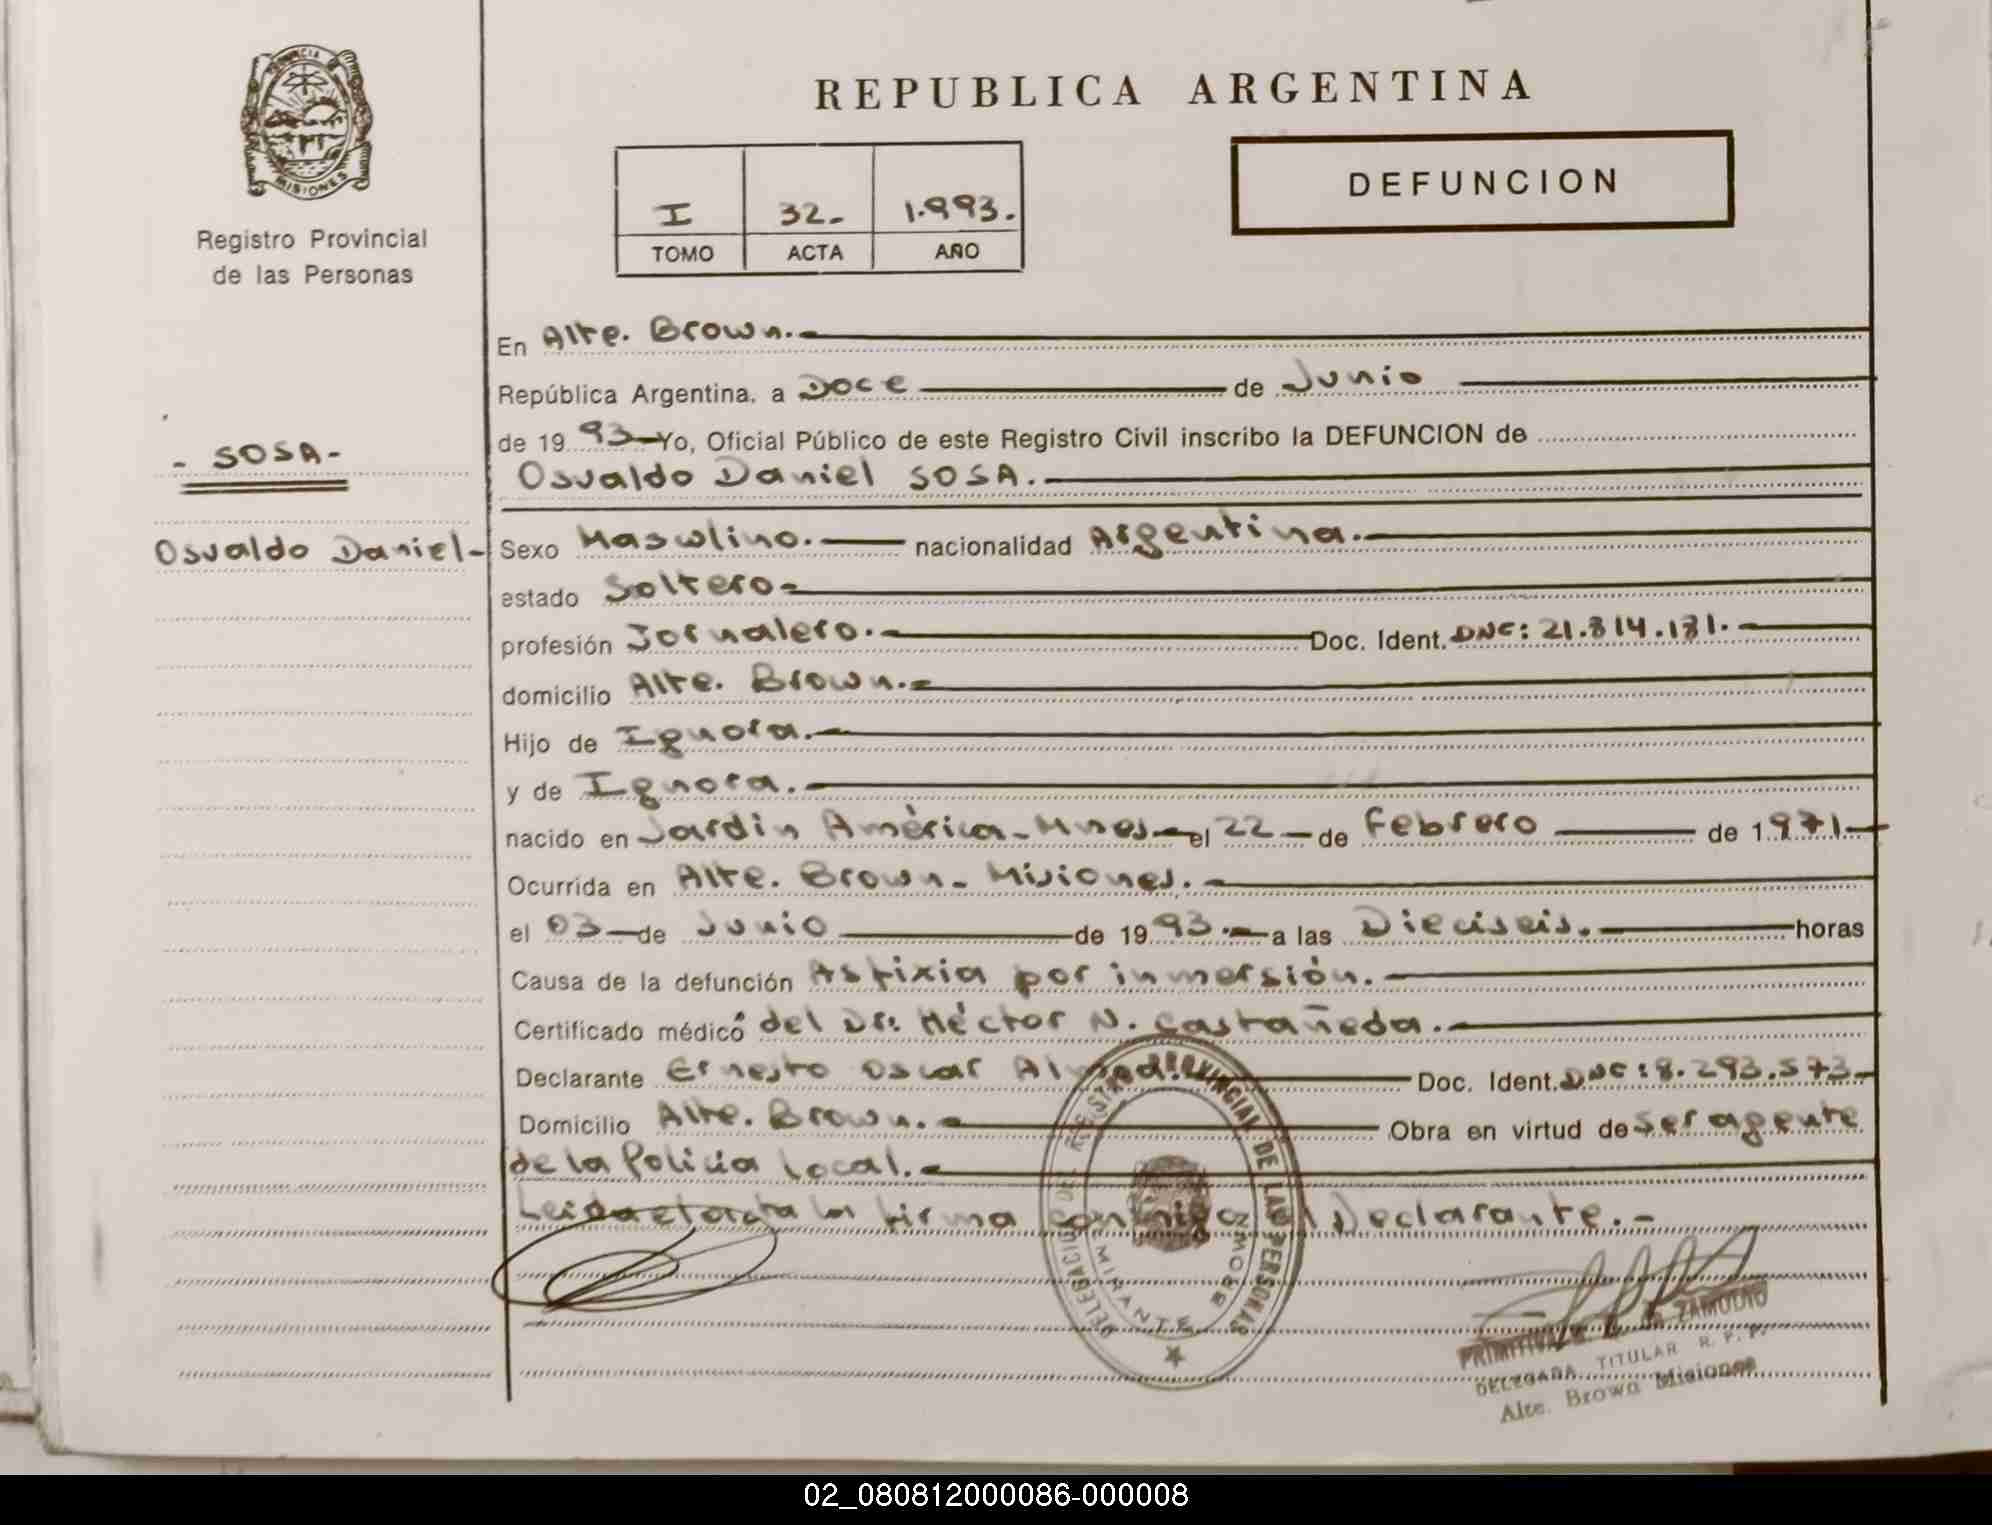 PROVINCIA DE
MISIONES
Registro Provincial
de las Personas
REPUBLICA ARGENTINA
DEFUNCION
I 32- 1.993.
TOMO ACTA AÑO
En Alte. Brown.-
República Argentina, a Doce de Junio
de 19 93 Yo, Oficial Público de este Registro Civil inscribo la DEFUNCION de
- SOSA-
Osvaldo Daniel SOSA.
Osvaldo Daniel-
Sexo Masculino. nacionalidad Argentina.
estado Soltero-
profesión Jornalero.- Doc. Ident. DNC: 21.814.181.-
domicilio Alte. Brown.-
Hijo de Ignora.-
y de Ignora.
nacido en Jardin América-Mnes- el 22 - de Febrero de 1.971-
Ocurrida en Alte. Brown- Misiones.-
el 03 de Junio de 19 93.- a las Dieciseis.- horas
Causa de la defunción Asfixia por inmersión.-
Certificado médico del Dr: Héctor N. Castañeda.-
Declarante Ernesto Oscar Doc. Ident. DNC: 8.293.573-
Domicilio Alte. Brown.- Obra en virtud de ser agente
de la Policia Local.-
Leida el acta la firma conmigo el Declarante.-
DELEGACION REGISTRO PROVINCIAL DE LAS PERSONAS
ALMIRANTE BROWN
ZAMUDIO
DELEGADA TITULAR R. P. P.
Alte. Brown Misiones
02_080812000086-000008